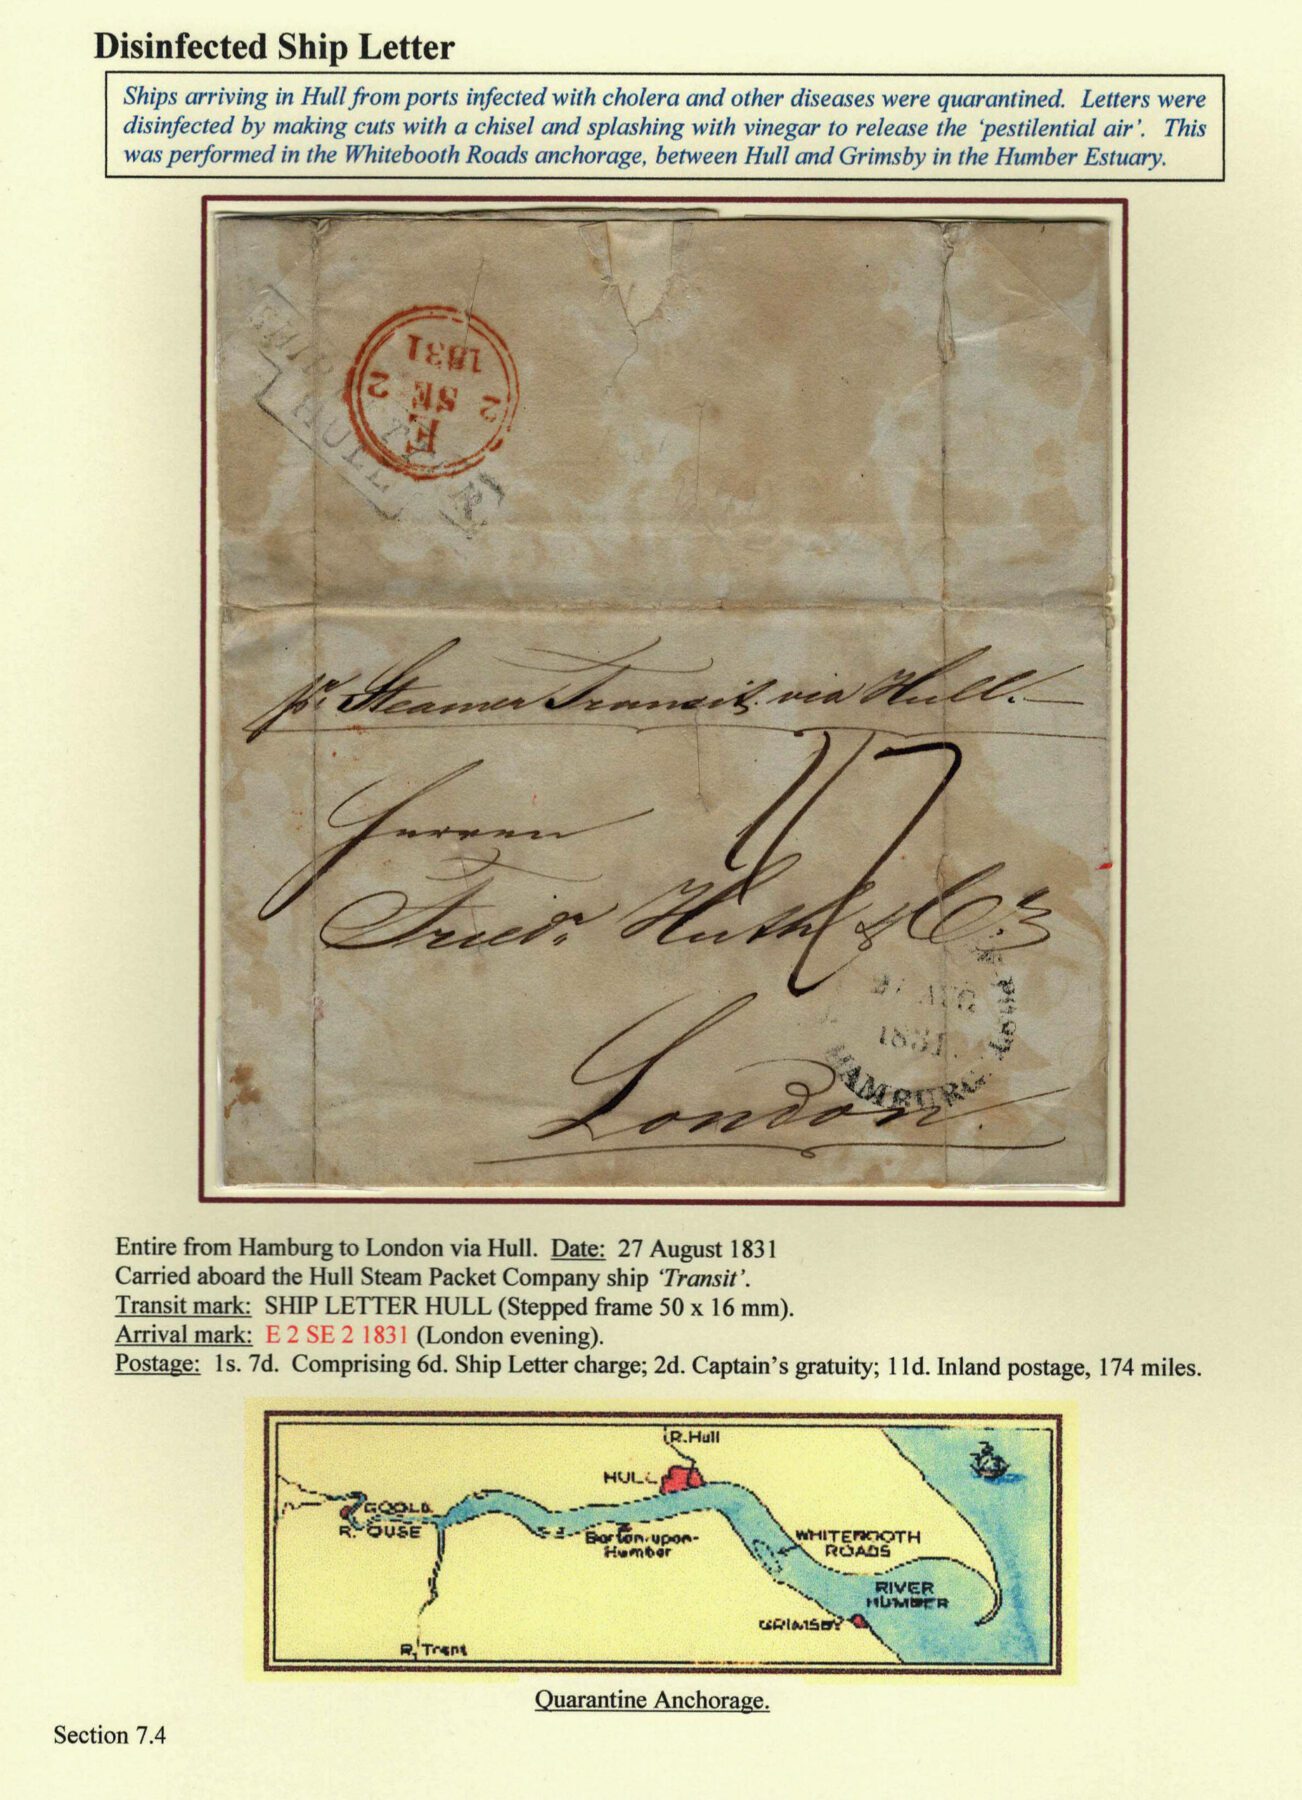 Disinfected Ship Letter
Ships arriving in Hull from ports infected with cholera and other diseases were quarantined. Letters were
disinfected by making cuts with a chisel and splashing with vinegar to release the ‘pestilential air’. This
was performed in the Whitebooth Roads anchorage, between Hull and Grimsby in the Humber Estuary.
SHIP LETTER
HULL
E
2 SE 2
1831
pr. Steamer Transit via Hull.
1/7
Herren
Friedr. Huth & Co.
London.
1831
HAMBURG
Entire from Hamburg to London via Hull. Date: 27 August 1831
Carried aboard the Hull Steam Packet Company ship ‘Transit’.
Transit mark: SHIP LETTER HULL (Stepped frame 50 x 16 mm).
Arrival mark: E 2 SE 2 1831 (London evening).
Postage: 1s. 7d. Comprising 6d. Ship Letter charge; 2d. Captain’s gratuity; 11d. Inland postage, 174 miles.
R. Hull
HULL
GOOLE
R. OUSE
Barton-upon-
Humber
WHITEBOOTH
ROADS
RIVER
HUMBER
GRIMSBY
R. Trent
Quarantine Anchorage.
Section 7.4